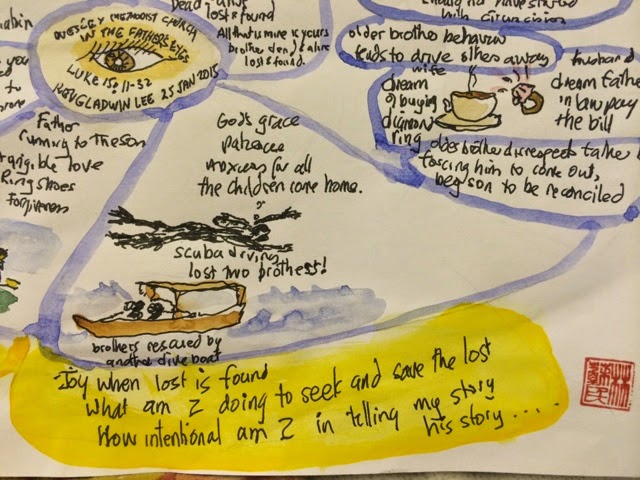 WESLEY METHODIST CHURCH
IN THE FATHERS EYES
LUKE 15: 11-32
REV GLADWIN LEE 25 JAN 2015
lost & found
All that is mine is yours
brother dead, alive
lost & found.
with circumcision
older brother behavior
tends to drive others away
wife
dream
of buying
diamond
ring
husband
dream father
in law pay
the bill
older brother disrespects father
forcing him to come out,
beg son to be reconciled
Father
running to the son
tangible love
Ring shoes
Forgiveness
God's grace
patience
Anxious for all
the children come home.
scuba diving
lost two brothers!
brothers rescued by
another dive boat
Joy when lost is found
What am I doing to seek and save the lost
How intentional am I in telling my story
his story.....